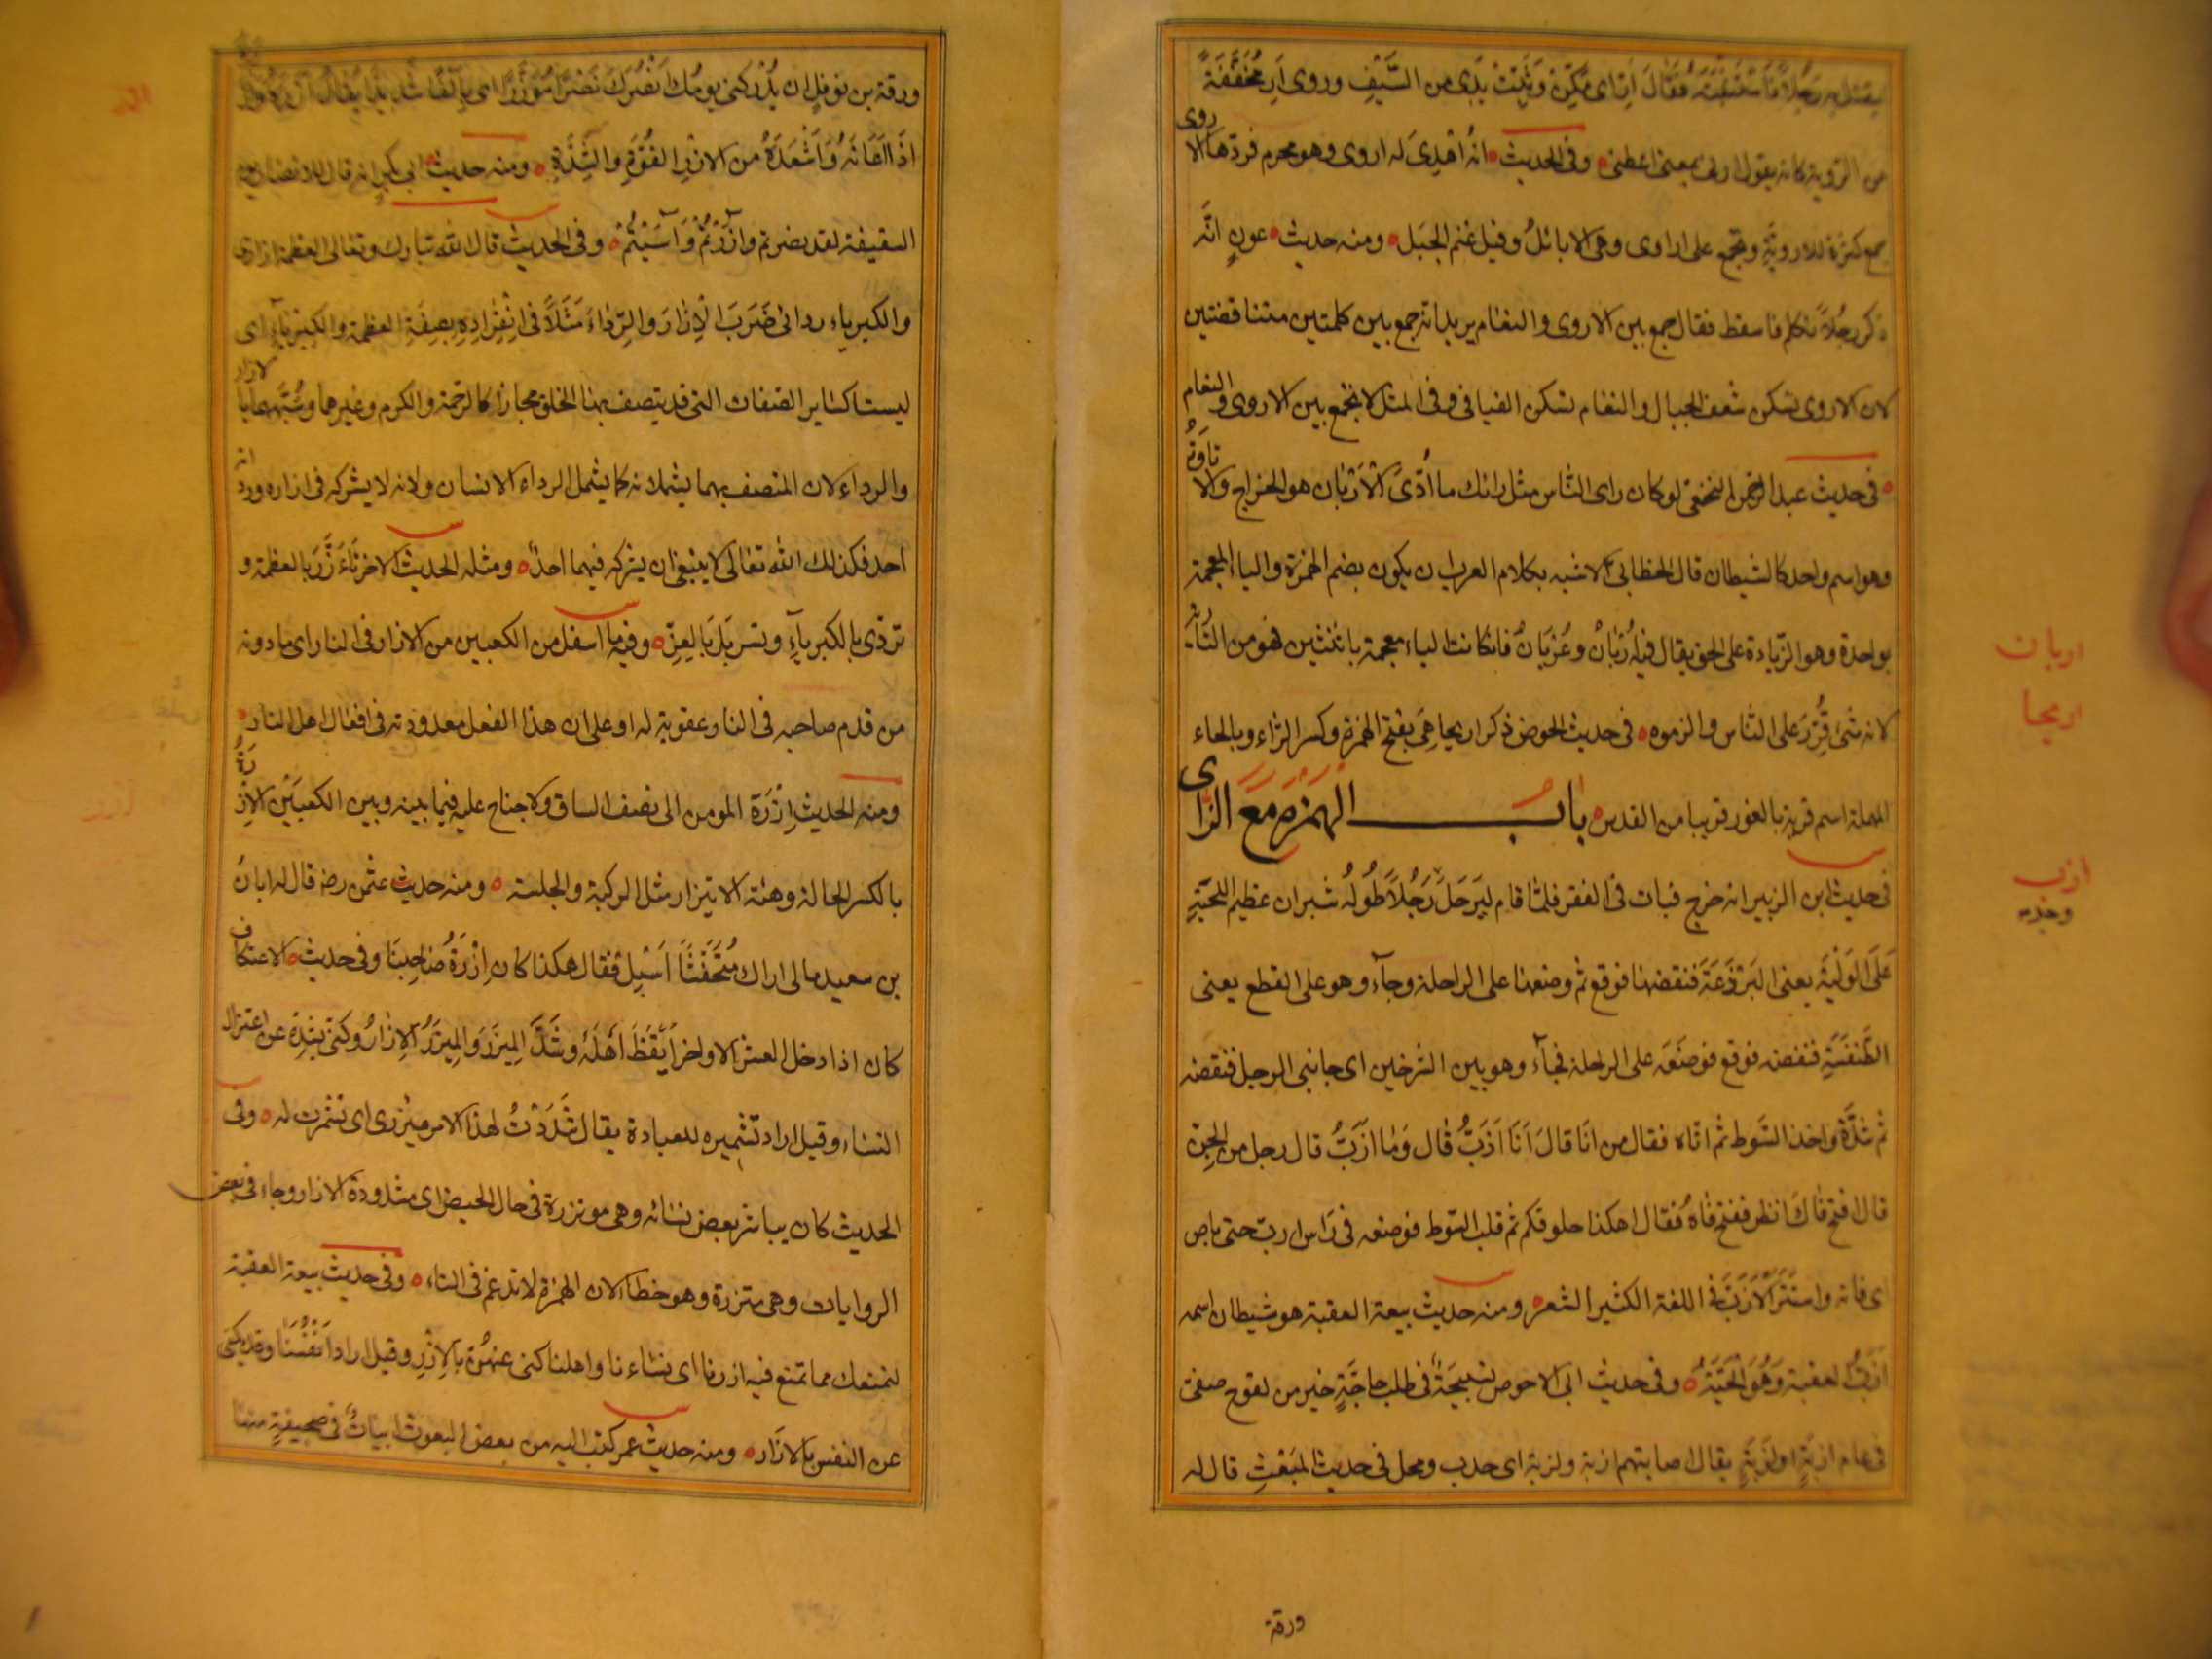 ليقتل به رجلا فاستثبته فقال ارّ اى مكّن وثبّت يدى من السَّيْفِ وروى اَرِ مُخَفَّفَةً
من الرؤية كانه يقول ارنى بمعنى اعطنى وفى الحديث انه اُهْدِىَ له اروى وهو محرم فردّها الاروى
جمع كثرة للاروِيَّةِ وتجمع على اراوى وهى الايائلُ وقيل غنم الجَبَل ومنه حديث عونٍ انّه
ذكر رجُلاً تكلم فاسقط فقال جمع بين الاروى والنعام يريد انه جمع بين كلمتين متناقضتين
لان الاروى تسكن شعف الجبال والنعام تسكن الفيافى وفى المثل لا تجمع بين الاروى والنعام
فى حديث عبد الرحمن النخعى لو كان راى الناس مثل رائك ما اُدِّىَ الاَرْيَان هو الخراج والاتاوة
وهو اسم واحد كالشيطان قال الخطابى الاشبه بكلام العرب ان يكون بضم الهمزة والباء المعجمة
بواحدة وهو الزيادة على الحق يقال فيه اُرْبَانٌ وعُرْبَانٌ فان كانت الياء معجمة باثنتين فهو من التارية
لانه شىء قُرِّرَ على الناس والزموه فى حديث الحوض ذكر اريحا هِىَ بفتح الهمزة وكسر الراء وبالحاء
المهملة اسم قرية بالغور قريبا من القدس باب الهمزة مع الزاى
فى حديث ابن الزبير انه خرج فبات فى القفر فلما قام ليَرحَلَ وَجَدَ رَجُلاً طُولُهُ شبران عظيم اللحْيَةِ
عَلَى الوَلِيَّةِ يعنى البَرْذَعَةَ فنفضها فوقع ثم وضعها على الراحلة وجآء وهو على القطع يعنى
الطِّنفَسَةِ فنفضه فوقع فوضعَه على الراحلة فجآء وهو بين الشرخين اى جانبى الرحل فنفضه
ثم شدَّهُ واخذ السَّوط ثم اتاه فقال من انَا قالَ اَنَا اَزَبُّ قال وَما ازَبُّ قال رجل من الجِنّ
قال افتح فَاكَ انظر ففتح فَاهُ فقال اهكذا حلوقكم ثم قلب السّوط فوضعه فى رَاس ازب حتى باص
اى فاته واستتر الاَزَبُّ فى اللغة الكثير الشعر ومنه حديث بيعة العقبة هو شيطان اسمه
اَزَبُّ العقبة وَهُوَ الحَيَّةُ وفى حديث ابى الاحوص تسْبِيحَةٌ فى طلب حاجَةٍ خير من لقوح صفىّ
فى عام ازبَةٍ او لَزْبَةٍ يقال اصابتهم ازبة ولزبة اى جدب ومحل فى حديث المَبْعَثِ قال له
ورقة
اربان
اريحا
ازب
ورقة بن نوفل ان يُدْركنى يومُك اَنْصُرْكَ نَصْرًا مُؤَزَّرًا اى بالغًا شديدًا يقال ازَرَهُ وآزره
اذَا اَعَانَهُ وَاَسْعَدَهُ من الازْرِ القُوَّةِ والشِّدَّةِ ومنه حديث ابى بكرٍ انه قال للانصار يوم
السقيفة لقد نصرتم وآزَرْتُمْ وَآسَيْتُمْ وفى الحديث قال الله تبارك وتعالى العظمة ازارى
والكبرياء ردائى ضَرَبَ الْاِزارَ والرِّداءَ مَثَلاً فى انْفِرادِهِ بِصِفَةِ العظمة والكِبْرِياَءِ اى
ليست كسَاير الصّفات التى قد يتصف بها الخلق مجازا كالرحمة والكرم وغيرهما وشَبَّهَهما بالازار
والرداء لان المتصف بهما يشملانه كما يشمل الرداء الانسان ولانه لا يشركه فى ازاره وردائه
احد فكذلك الله تعالى لا ينبغى ان يشركه فيهما احدٌ ومثله الحديث الاخر تَاَزَّرَ بالعظمة و
تردّى بالكبرياَءِ وتسربَلَ بالعِزّ وفيه ما اسفل من الكعبين من الازار وفى النار اى ما دونه
من قدم صاحبه فى النار عقوبة له او على ان هذا الفعل معدود فى افعال اهل النار
ومنه الحديث اِزْرَة المومن الى نصف الساق ولا جناح عليه فيما بينه وبين الكعبَيْنِ الاِزْرَةُ
بالكسر الحالة وهيئة الايتزار مثل الركبة والجلسة ومنه حديث عثمن رضه قال له ابانُ
بن سعيد مالى اراك مُتَحَشِّفًا اَسْبِل فقال هكذا كان اِزْرَةُ صَاحِبِنَا وفى حديث الاعتكاف
كان اذا دخل العشر الاواخر اَيْقَظَ اَهْلَهُ وشَدَّ المِيزَرَ والمِيزَرُ الاِزارُ وكنى بِشَدِّهِ عن اعتزال
النسَاء وقيل اراد تَشْمِيره للعبادة يقال شَدَدْتُ لهذا الامر ميزرى اى تشمرت له وفى
الحديث كان يباشر بعض نسَائه وهى موتزرة فى حال الحيض اى مشدودة الازار وجاء فى بعض
الروايات وهى متزرة وهو خطأ لان الهمزة لا تدغم فى التاء وفى حديث بيعة العقبة
لنمنعك مما نمنع فيه ازرنا اى نسَاءنا واهلنا كنى عنهُنّ بالاِزْرِ وقيل اراد اَنْفُسَنا وقد يكنى
عن النفس بالازَار ومنه حديث عمر كتب اليه من بعض البعوث ابياتٌ فى صحيفةٍ منها
ازر